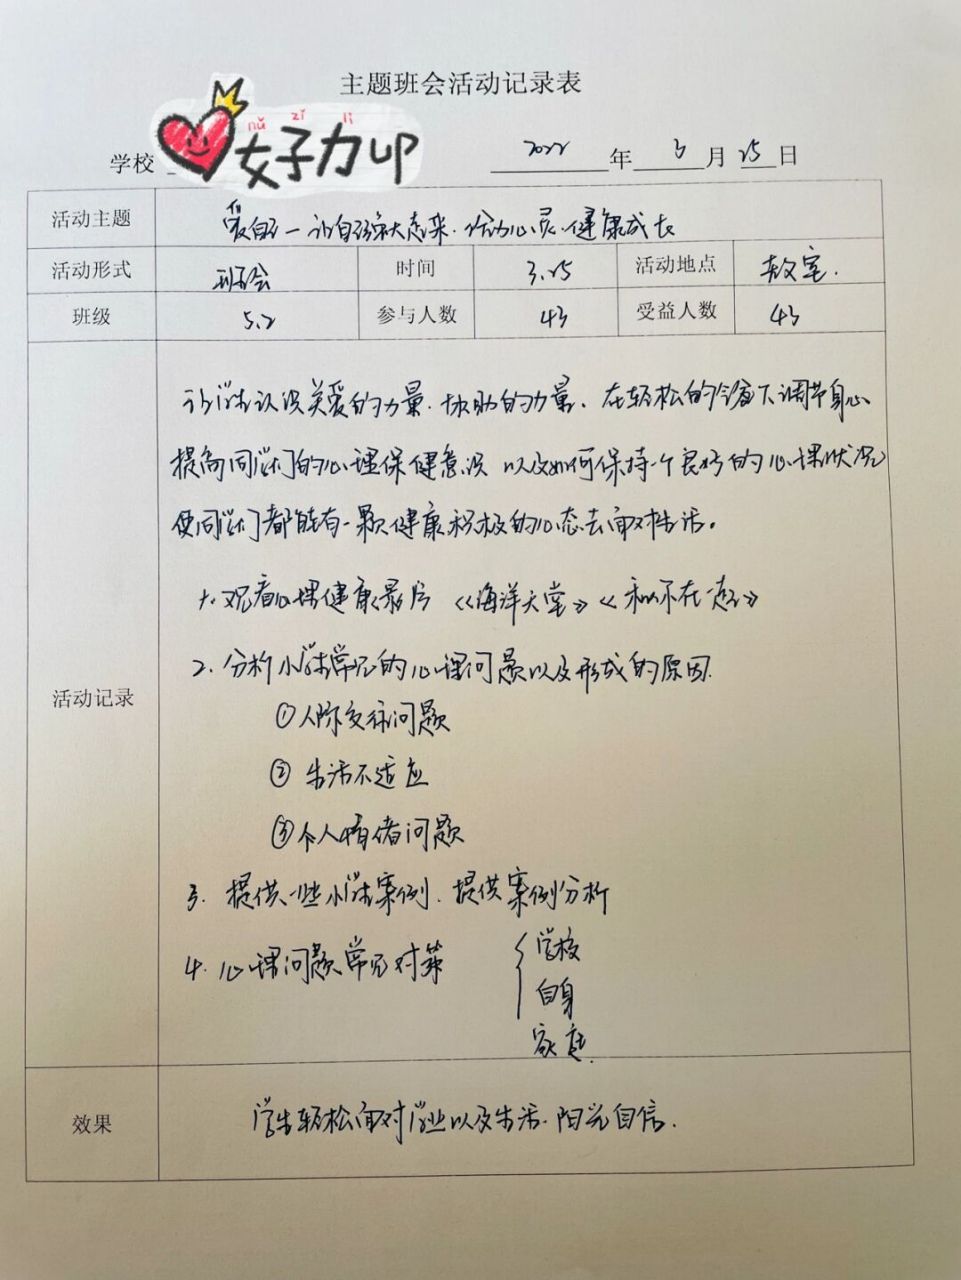 主题班会活动记录表
nǚ zǐ lì
好子力up
学校 2022年 3月25日
活动主题 爱自己一让自己强大起来.让心灵.健康成长
活动形式 班会 时间 3.25 活动地点 教室.
班级 5.2 参与人数 43 受益人数 43
让学生认识关爱的力量.协助的力量.在轻松的氛围下调节身心
提高同学们的心理保健意识 以及如何保持一个良好的心理状况
使同学们都能有一颗健康积极的心态去面对生活。
1.观看心理健康影片《海洋天堂》《和你在一起》
2.分析小学生常见的心理问题以及形成的原因.
活动记录
①人际交往问题
②生活不适应
③个人情绪问题
3.提供一些小学生案例.提供案例分析
4.心理问题常见对策 学校
自身
家庭.
效果 学生轻松面对学业以及生活.阳光自信.